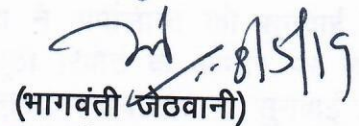 8/5/19
(भागवंती जेठवानी)